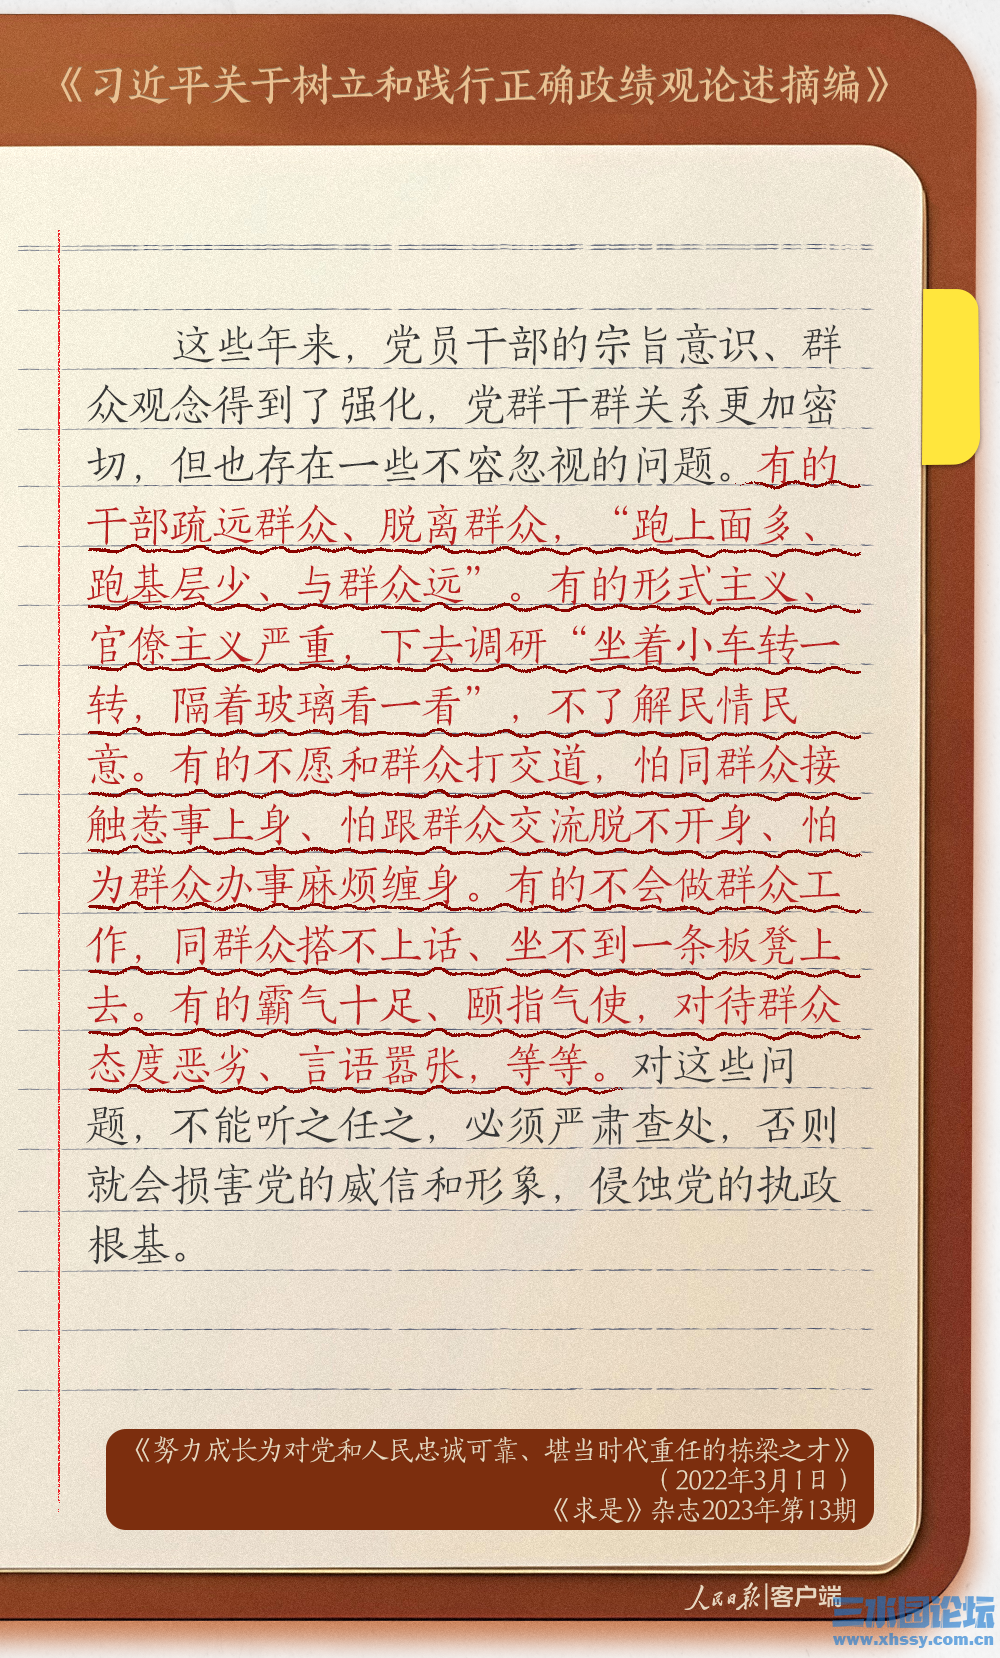 《习近平关于树立和践行正确政绩观论述摘编》
这些年来，党员干部的宗旨意识、群
众观念得到了强化，党群干群关系更加密
切，但也存在一些不容忽视的问题。有的
干部疏远群众、脱离群众，“跑上面多、
跑基层少、与群众远”。有的形式主义、
官僚主义严重，下去调研“坐着小车转一
转，隔着玻璃看一看”，不了解民情民
意。有的不愿和群众打交道，怕同群众接
触惹事上身、怕跟群众交流脱不开身、怕
为群众办事麻烦缠身。有的不会做群众工
作，同群众搭不上话、坐不到一条板凳上
去。有的霸气十足、颐指气使，对待群众
态度恶劣、言语嚣张，等等。对这些问
题，不能听之任之，必须严肃查处，否则
就会损害党的威信和形象，侵蚀党的执政
根基。
《努力成长为对党和人民忠诚可靠、堪当时代重任的栋梁之才》
（2022年3月1日）
《求是》杂志2023年第13期
人民日报|客户端
三水园论坛
www.xhssy.com.cn